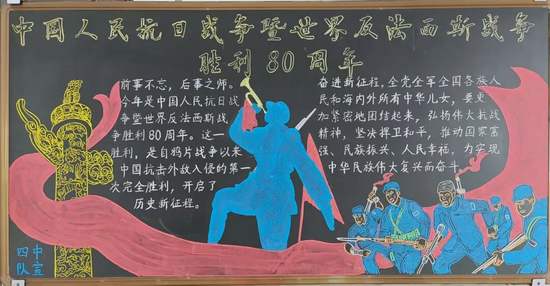 中国人民抗日战争暨世界反法西斯战争
胜利80周年
前事不忘，后事之师。
今年是中国人民抗日战
争暨世界反法西斯战
争胜利80周年。这一
胜利，是自鸦片战争以来
中国抗击外敌入侵的第一
次完全胜利，开启了
历史新征程。
奋进新征程，全党全军全国各族人
民和海内外所有中华儿女，要更
加紧密地团结起来，弘扬伟大抗战
精神，坚决捍卫和平，推动国家富
强、民族振兴、人民幸福，为实现
中华民族伟大复兴而奋斗
四中
队宣